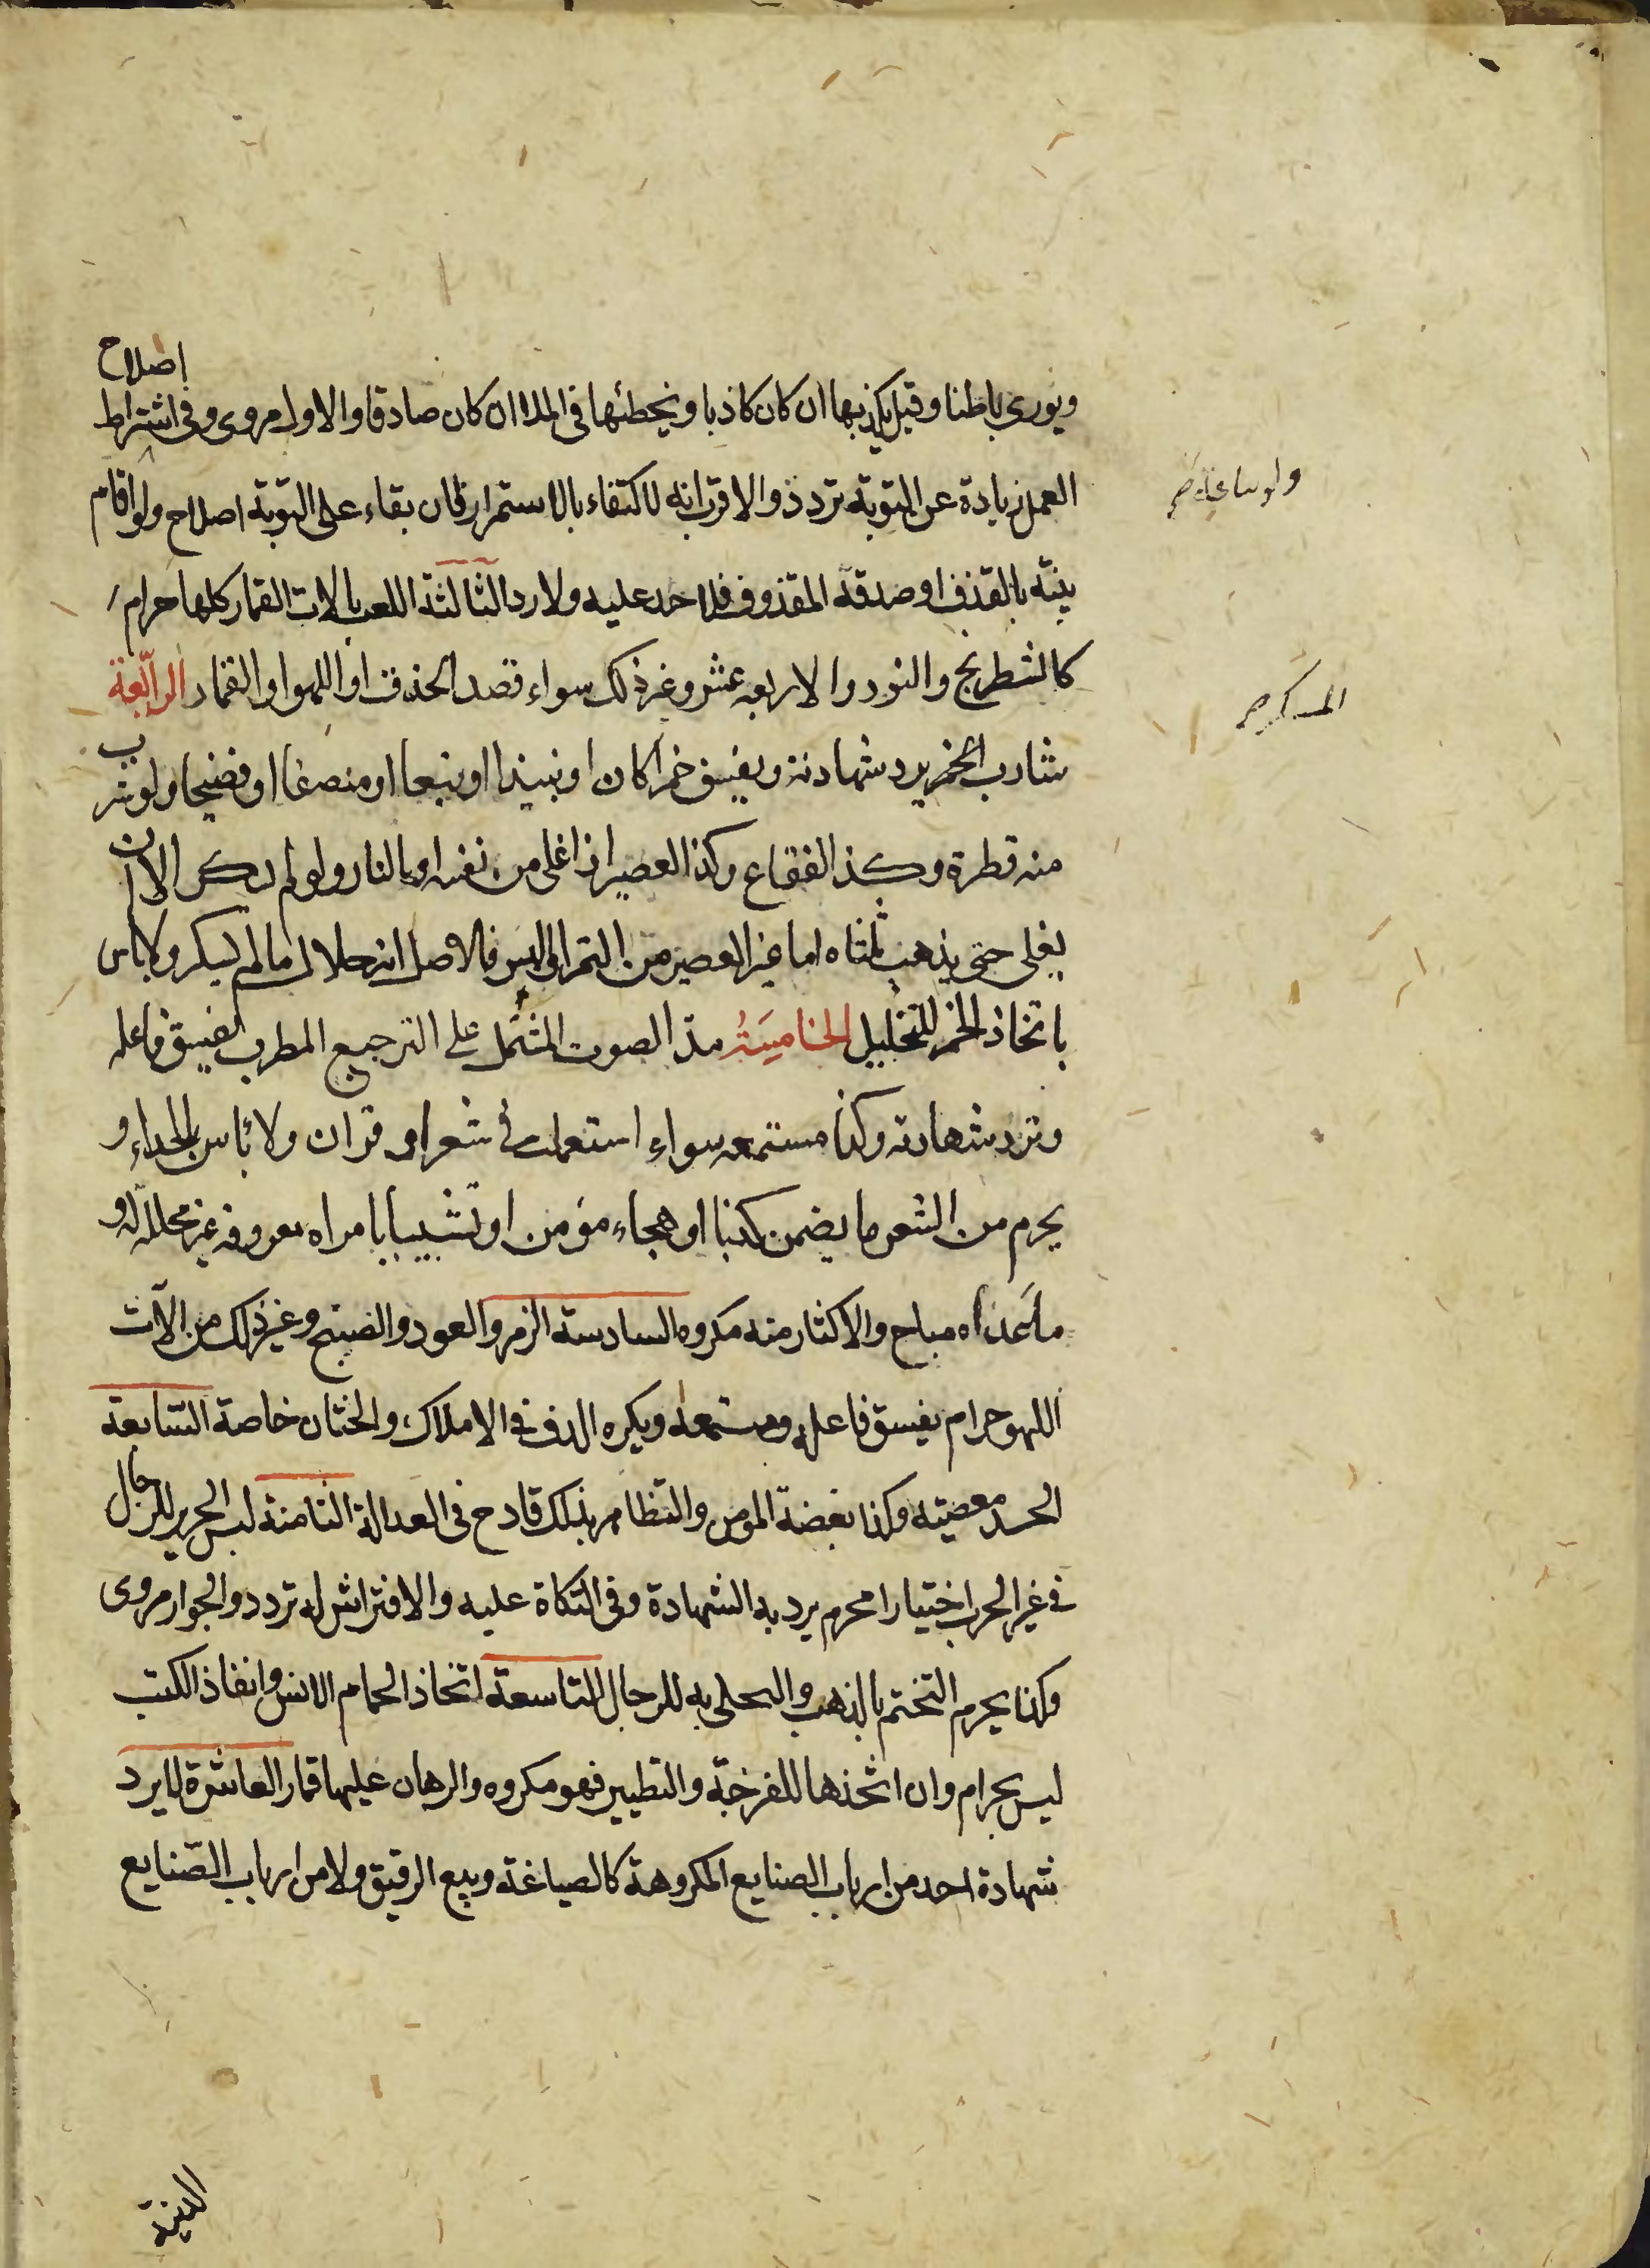 ويورى باطنا وقيل يكذبها ان كان كاذبا ويخطئها فى الملا ان كان صادقا والاول مروى وفى اشتراط اصلاح
العمل زيادة عن التوبة تردد والاقرب انه لا كتفاء بالاستمرار فان بقاء على التوبة اصلاح ولو اقام
بينة بالقذف او صدقه المقذوف فلا حد عليه ولا رد الثالثة اللعب بالات القمار كلها حرام
كالشطرنج والنرد والاربعه عشر وغير ذلك سواء قصد الحذق او اللهو او القمار الرابعة
شارب الخمر يرد شهادته ويفسق خمرا كان او نبيذا او بتعا او منصفا او فضيخا ولو شرب
منه قطرة وكذ الفقاع وكذا العصير اذا غلى من نفسه او بالنار ولو لم يسكر الا ان
يغلى حتى يذهب ثلثاه اما غير العصير من التمر او البسر فالاصل انه حلال ما لم يسكر ولا باس
باتخاذ الخمر للتخليل الخامسة مد الصوت المشتمل على الترجيع المطرب يفسق فاعله
وترد شهادته وكذا مستمعه سواء استعمل فى شعر او قران ولا باس بالحداء و
يحرم من الشعر ما يضمن كذبا او هجاء مؤمن او تشبيبا بامراه معروفه غير محللة له و
ما عداه مباح والاكثار منه مكروه السادسة الزمر والعود والصنج وغير ذلك من الآت
اللهو حرام يفسق فاعله ومستمعه ويكره الدف فى الاملاك والختان خاصة السابعة
الحسد معصيته وكذا بغضة المومن والتظاهر بذلك قادح فى العدالة الثامنة لبس الحرير للرجال
فى غير الحرب اختيارا محرم يرد به الشهادة وفى التكاة عليه والافتراش له تردد والجواز مروى
وكذا يحرم التختم بالذهب والتحلى به للرجال التاسعة اتخاذ الحمام الانس وانفاذ الكتب
ليس بحرام وان اتخذها للفرخة والتطيير فهو مكروه والرهان عليها قمار العاشرة لا يرد
شهادة احد من ارباب الصنايع المكروهة كالصياغة وبيع الرقيق ولا من ارباب الصنايع
الدنية
ولو ساعة